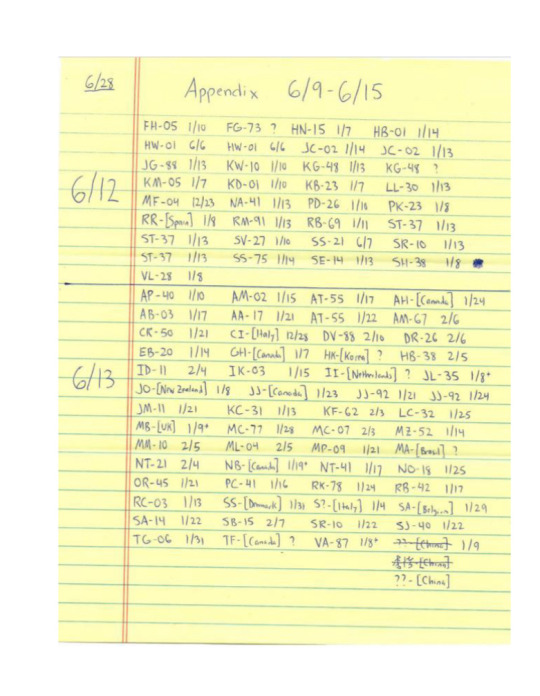 6/28 Appendix 6/9-6/15
6/12
FH-05 1/10 FG-73 ? HN-15 1/7 HB-01 1/14
HW-01 6/6 HW-01 6/6 JC-02 1/14 JC-02 1/13
JG-88 1/13 KW-10 1/10 KG-48 1/13 KG-48 ?
KM-05 1/7 KD-01 1/10 KB-23 1/7 LL-30 1/13
MF-04 12/23 NA-41 1/13 PD-26 1/11 PK-23 1/8
RR-[Spain] 1/8 RM-91 1/13 RB-69 1/11 ST-37 1/13
ST-37 1/13 SV-27 1/10 SS-21 6/7 SR-10 1/13
ST-37 1/13 SS-75 1/14 SE-14 1/13 SH-38 1/8
VL-28 1/8
6/13
AP-40 1/10 AM-02 1/15 AT-55 1/17 AH-[Canada] 1/24
AB-03 1/17 AA-17 1/21 AT-55 1/22 AM-67 2/6
CK-50 1/21 CI-[Italy] 12/28 DV-88 2/10 DR-26 2/6
EB-20 1/14 GH-[Canada] 1/7 HK-[Korea] ? HB-38 2/5
ID-11 2/4 IK-03 1/15 II-[Netherlands] ? JL-35 1/8+
JO-[New Zealand] 1/8 JJ-[Canada] 1/23 JJ-92 1/21 JJ-92 1/24
JM-11 1/21 KC-31 1/13 KF-62 2/3 LC-32 1/25
MB-[UK] 1/9+ MC-77 1/28 MC-07 2/3 MZ-52 1/14
MM-10 2/5 ML-04 2/5 MP-09 1/21 MA-[Brazil] ?
NT-21 2/4 NB-[Canada] 1/19+ NT-41 1/17 NO-18 1/25
OR-45 1/21 PC-41 1/16 RK-78 1/24 RB-42 1/17
RC-03 1/13 SS-[Denmark] 1/31 S?-[Italy] 1/4 SA-[Belgium] 1/29
SA-14 1/22 SB-15 2/7 SR-10 1/22 SJ-40 1/22
TG-06 1/31 TF-[Canada] ? VA-87 1/8+ ??-[China] 1/9
-[China]
??-[China]